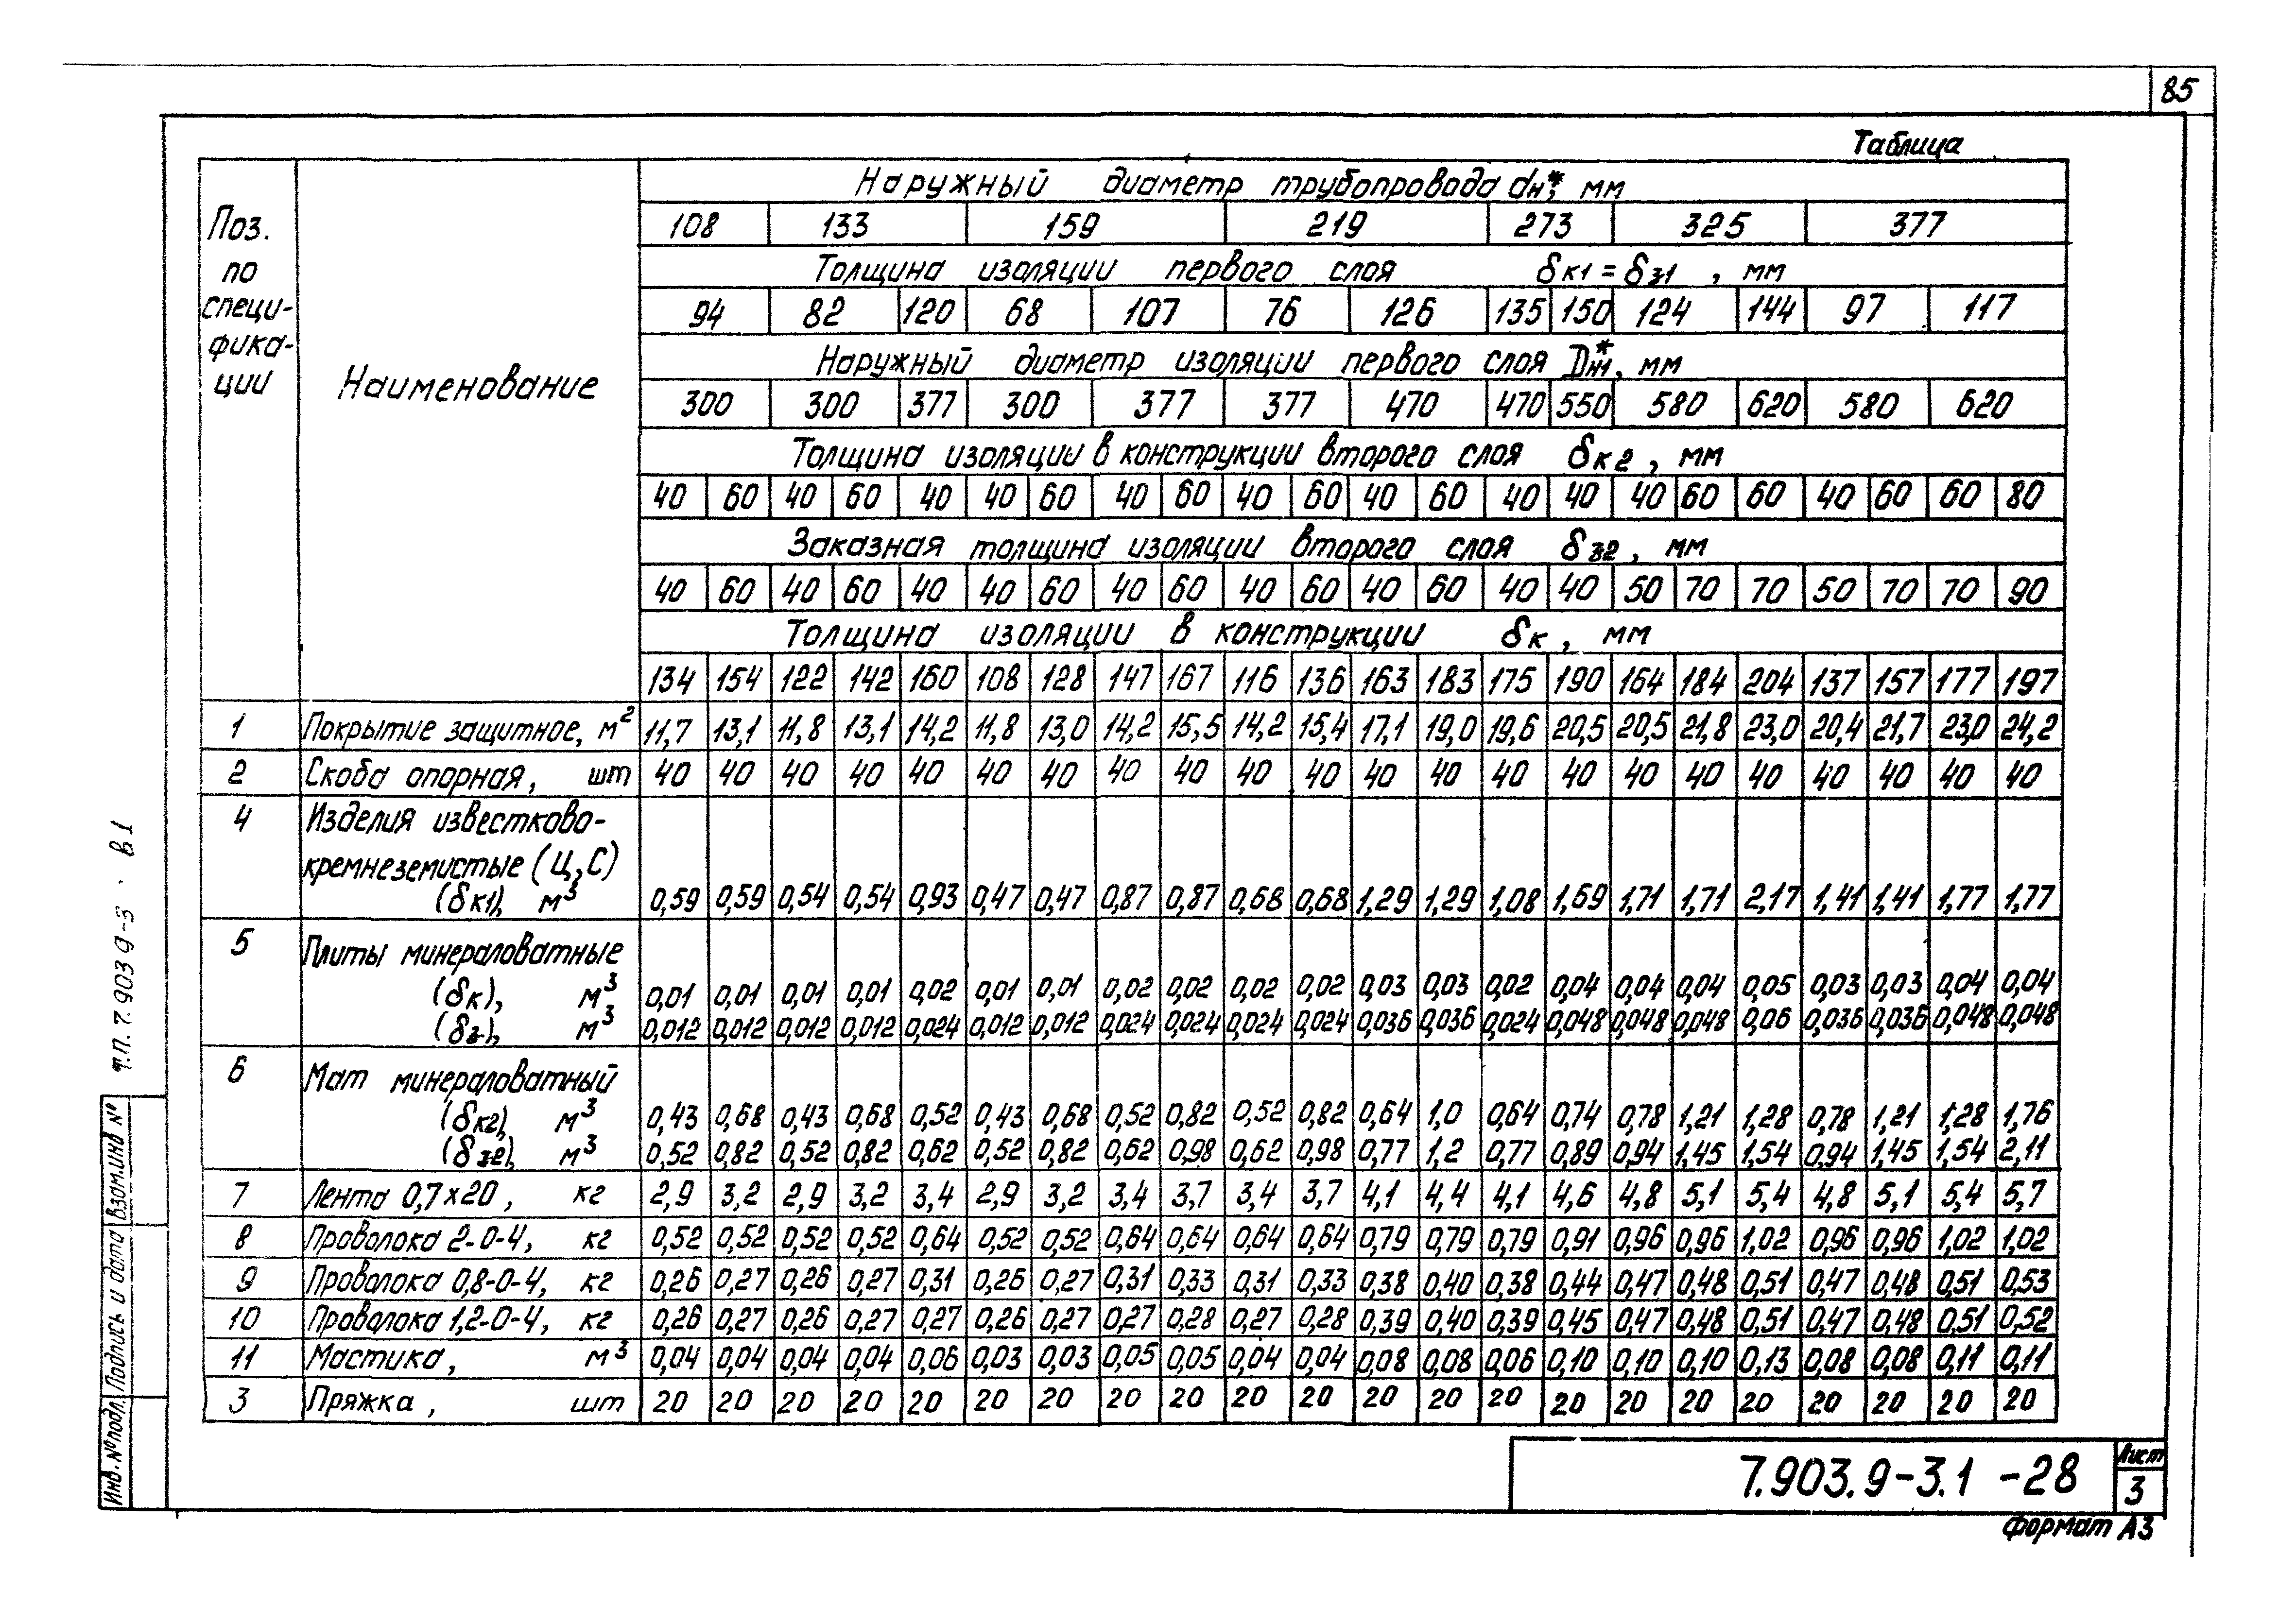 85
Таблица
Поз. по специ- фика- ции
Наименование
Наружный диаметр трубопровода dн*, мм
108 133 159 219 273 325 377
Толщина изоляции первого слоя δк1 = δз1 , мм
94 82 120 68 107 76 126 135 150 124 144 97 117
Наружный диаметр изоляции первого слоя Dн1*, мм
300 300 377 300 377 377 470 470 550 580 620 580 620
Толщина изоляции в конструкции второго слоя δк2 , мм
40 60 40 60 40 40 60 40 60 40 60 40 60 40 40 40 60 60 40 60 60 80
Заказная толщина изоляции второго слоя δз2 , мм
40 60 40 60 40 40 60 40 60 40 60 40 60 40 40 50 70 70 50 70 70 90
Толщина изоляции в конструкции δк , мм
134 154 122 142 160 108 128 147 167 116 136 163 183 175 190 164 184 204 137 157 177 197
1 Покрытие защитное, м² 11,7 13,1 11,8 13,1 14,2 11,8 13,0 14,2 15,5 14,2 15,4 17,1 19,0 19,6 20,5 20,5 21,8 23,0 20,4 21,7 23,0 24,2
2 Скоба опорная, шт 40 40 40 40 40 40 40 40 40 40 40 40 40 40 40 40 40 40 40 40 40 40
4 Изделия известково-
кремнеземистые (Ц,С)
(δк1), м³ 0,59 0,59 0,54 0,54 0,93 0,47 0,47 0,87 0,87 0,68 0,68 1,29 1,29 1,08 1,69 1,71 1,71 2,17 1,41 1,41 1,77 1,77
5 Плиты минераловатные
(δк), м³ 0,01 0,01 0,01 0,01 0,02 0,01 0,01 0,02 0,02 0,02 0,02 0,03 0,03 0,02 0,04 0,04 0,04 0,05 0,03 0,03 0,04 0,04
(δз), м³ 0,012 0,012 0,012 0,012 0,024 0,012 0,012 0,024 0,024 0,024 0,024 0,036 0,036 0,024 0,048 0,048 0,048 0,06 0,036 0,036 0,048 0,048
6 Мат минераловатный
(δк2), м³ 0,43 0,68 0,43 0,68 0,52 0,43 0,68 0,52 0,82 0,52 0,82 0,64 1,0 0,64 0,74 0,78 1,21 1,28 0,78 1,21 1,28 1,76
(δз2), м³ 0,52 0,82 0,52 0,82 0,62 0,52 0,82 0,62 0,98 0,62 0,98 0,77 1,2 0,77 0,89 0,94 1,45 1,54 0,94 1,45 1,54 2,11
7 Лента 0,7×20 , кг 2,9 3,2 2,9 3,2 3,4 2,9 3,2 3,4 3,7 3,4 3,7 4,1 4,4 4,1 4,6 4,8 5,1 5,4 4,8 5,1 5,4 5,7
8 Проволока 2-0-4, кг 0,52 0,52 0,52 0,52 0,64 0,52 0,52 0,64 0,64 0,64 0,64 0,79 0,79 0,79 0,91 0,96 0,96 1,02 0,96 0,96 1,02 1,02
9 Проволока 0,8-0-4, кг 0,26 0,27 0,26 0,27 0,31 0,26 0,27 0,31 0,33 0,31 0,33 0,38 0,40 0,38 0,44 0,47 0,48 0,51 0,47 0,48 0,51 0,53
10 Проволока 1,2-0-4, кг 0,26 0,27 0,26 0,27 0,27 0,26 0,27 0,27 0,28 0,27 0,28 0,39 0,40 0,39 0,45 0,47 0,48 0,51 0,47 0,48 0,51 0,52
11 Мастика, м³ 0,04 0,04 0,04 0,04 0,06 0,03 0,03 0,05 0,05 0,04 0,04 0,08 0,08 0,06 0,10 0,10 0,10 0,13 0,08 0,08 0,11 0,11
3 Пряжка, шт 20 20 20 20 20 20 20 20 20 20 20 20 20 20 20 20 20 20 20 20 20 20
Т.П. 7.903 9-3 · в.1
Взам.инв №
Подпись и дата
Инв.№ подл.
7.903.9-3.1 -28
Лист
3
Формат А3